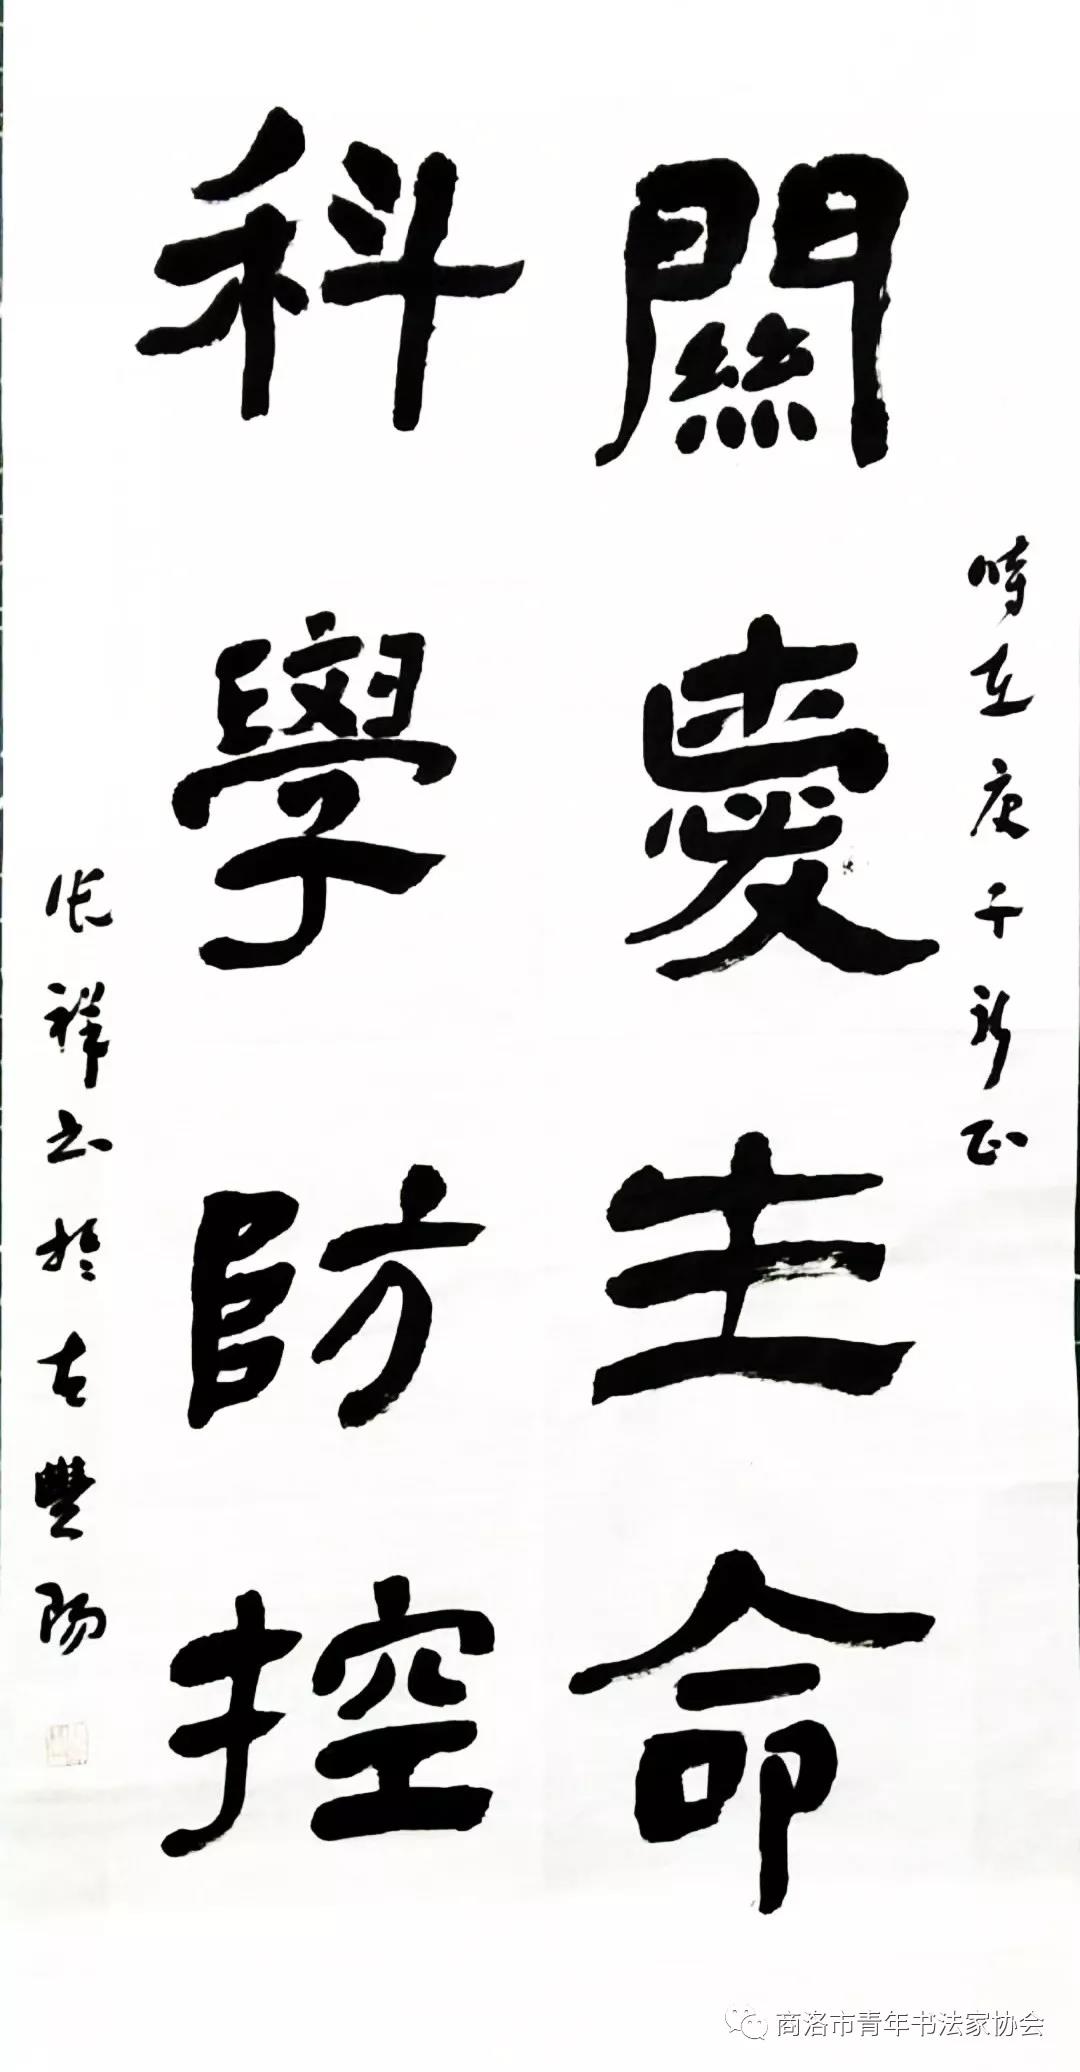 時在庚子新正
關愛生命
科學防控
張祥書於古豐陽
商洛市青年书法家协会